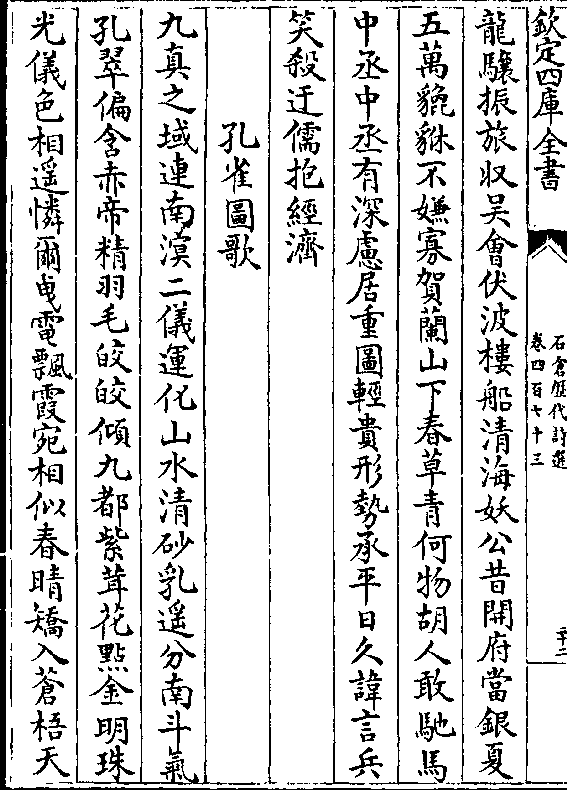 欽定四庫全書
石倉歷代詩選
卷四百七十三
二十二
龍驤振旅收吳會伏波樓船清海妖公昔開府當銀夏
五萬貔貅不嫌寡賀蘭山下春草青何物胡人敢馳馬
中丞中丞有深慮居重圖輕貴形勢承平日久諱言兵
笑殺迂儒抱經濟
孔雀圖歌
九真之域連南漠二儀運化山水清砂乳遥分南斗氣
孔翠偏含赤帝精羽毛皎皎傾九都紫茸花㸃金明珠
光儀色相遥憐爾曵電飄霞宛相似春晴矯入蒼梧天